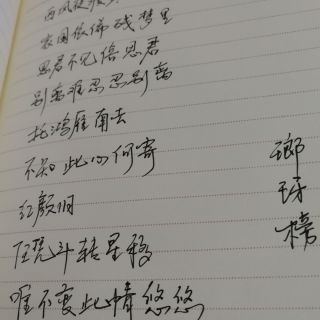 家国依稀残梦里
思君不见倍思君
别离难忍忍别离
托鸿雁南去
不知此心何寄
红颜旧
任凭斗转星移
唯不变此情悠悠
瑯
琊
榜